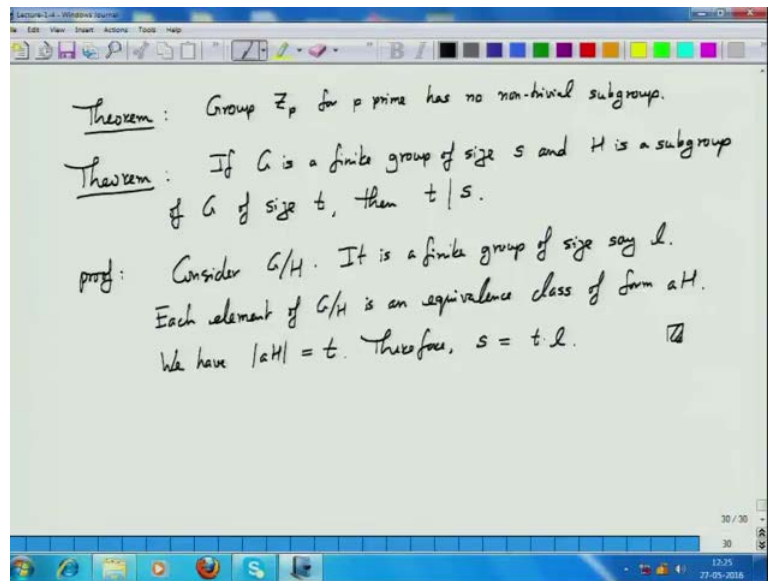 Lecture-1-4 - Windows Journal
File Edit View Insert Actions Tools Help
Theorem : Group Z_p for p prime has no non-trivial subgroup.
Theorem : If G is a finite group of size s and H is a subgroup
of G of size t, then t | s.
proof : Consider G/H. It is a finite group of size say l.
Each element of G/H is an equivalence class of form aH.
We have |aH| = t. Therefore, s = t.l.
30 / 30
30
12:25
27-05-2016